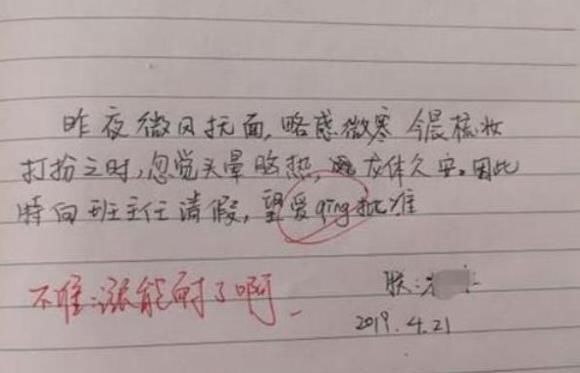 昨夜微风抚面,略感微寒 今晨梳妆
打扮之时,忽觉头晕脑热,龙体欠安。因此
特向班主任请假,望爱qing批准
不准:涨能耐了啊
朕:
2019.4.21